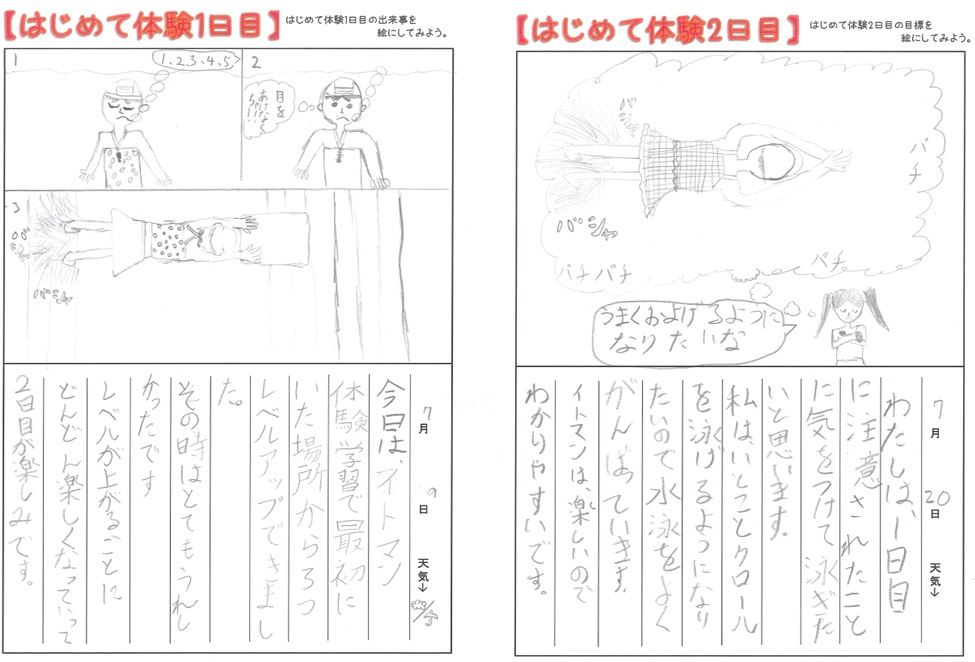 【はじめて体験1日目】
はじめて体験1日目の出来事を
絵にしてみよう。
1
1.2.3.4.5.
2
目を
あけなく
ちゃ!!
3
バシャ
バシャ
7月 9日 天気↓
今日は、イトマン
体験学習で最初に
いた場所から3つ
レベルアップできまし
た。
その時はとてもうれし
かったです
レベルが上がるごとに
どんどん楽しくなっていって
2日目が楽しみです。
【はじめて体験2日目】
はじめて体験2日目の目標を
絵にしてみよう。
バシャ
パチ
バシャ
パチパチ
パチ
うまくおよげるように
なりたいな
7月 20日 天気↓
わたしは、1日目
に注意されたこと
に気をつけて泳ぎた
いと思います。
私はいとことクロール
を泳げるようになり
たいので水泳をよく
がんばっていきます。
イトマンは、楽しいので
わかりやすいです。